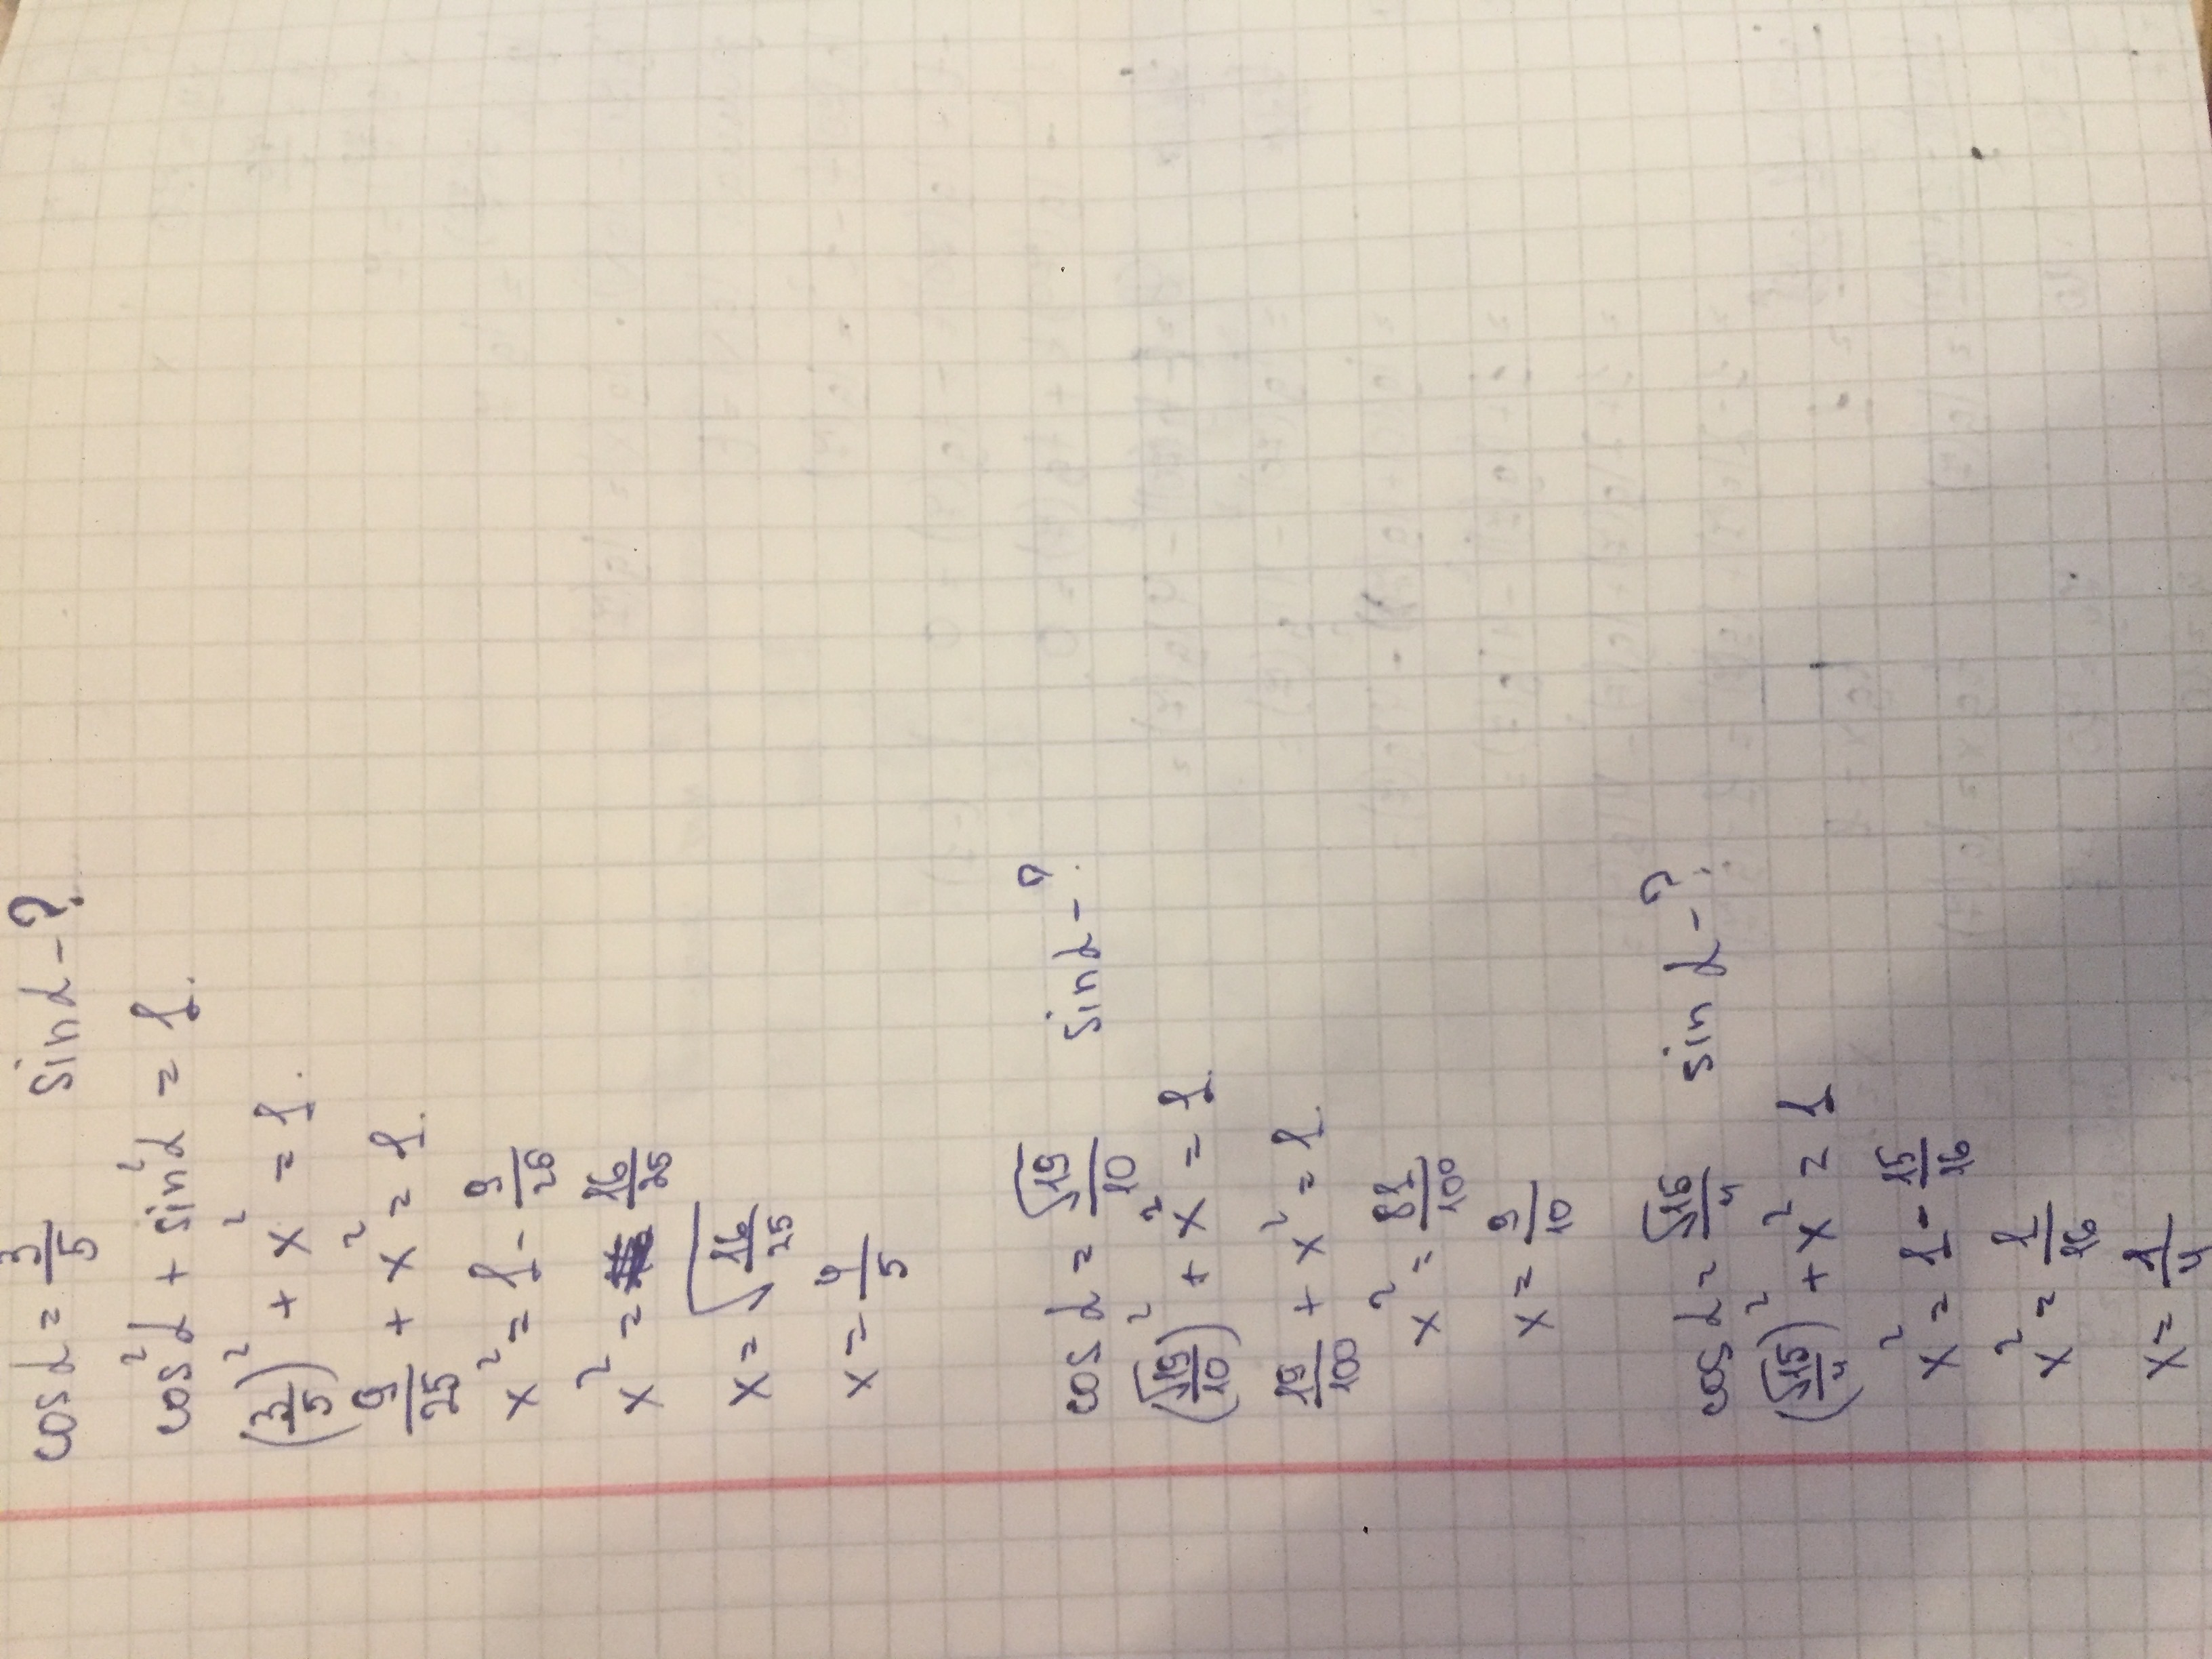 cos α = 3/5 sin α - ?
cos²α + sin²α = 1.
(3/5)² + x² = 1.
9/25 + x² = 1.
x² = 1 - 9/25
x² = 16/25
x = √(16/25)
x = 4/5
cos α = √19/10 sin α - ?
(√19/10)² + x² = 1.
19/100 + x² = 1.
x² = 81/100
x = 9/10
cos α = √15/4 sin α - ?
(√15/4)² + x² = 1
x² = 1 - 15/16
x² = 1/16
x = 1/4